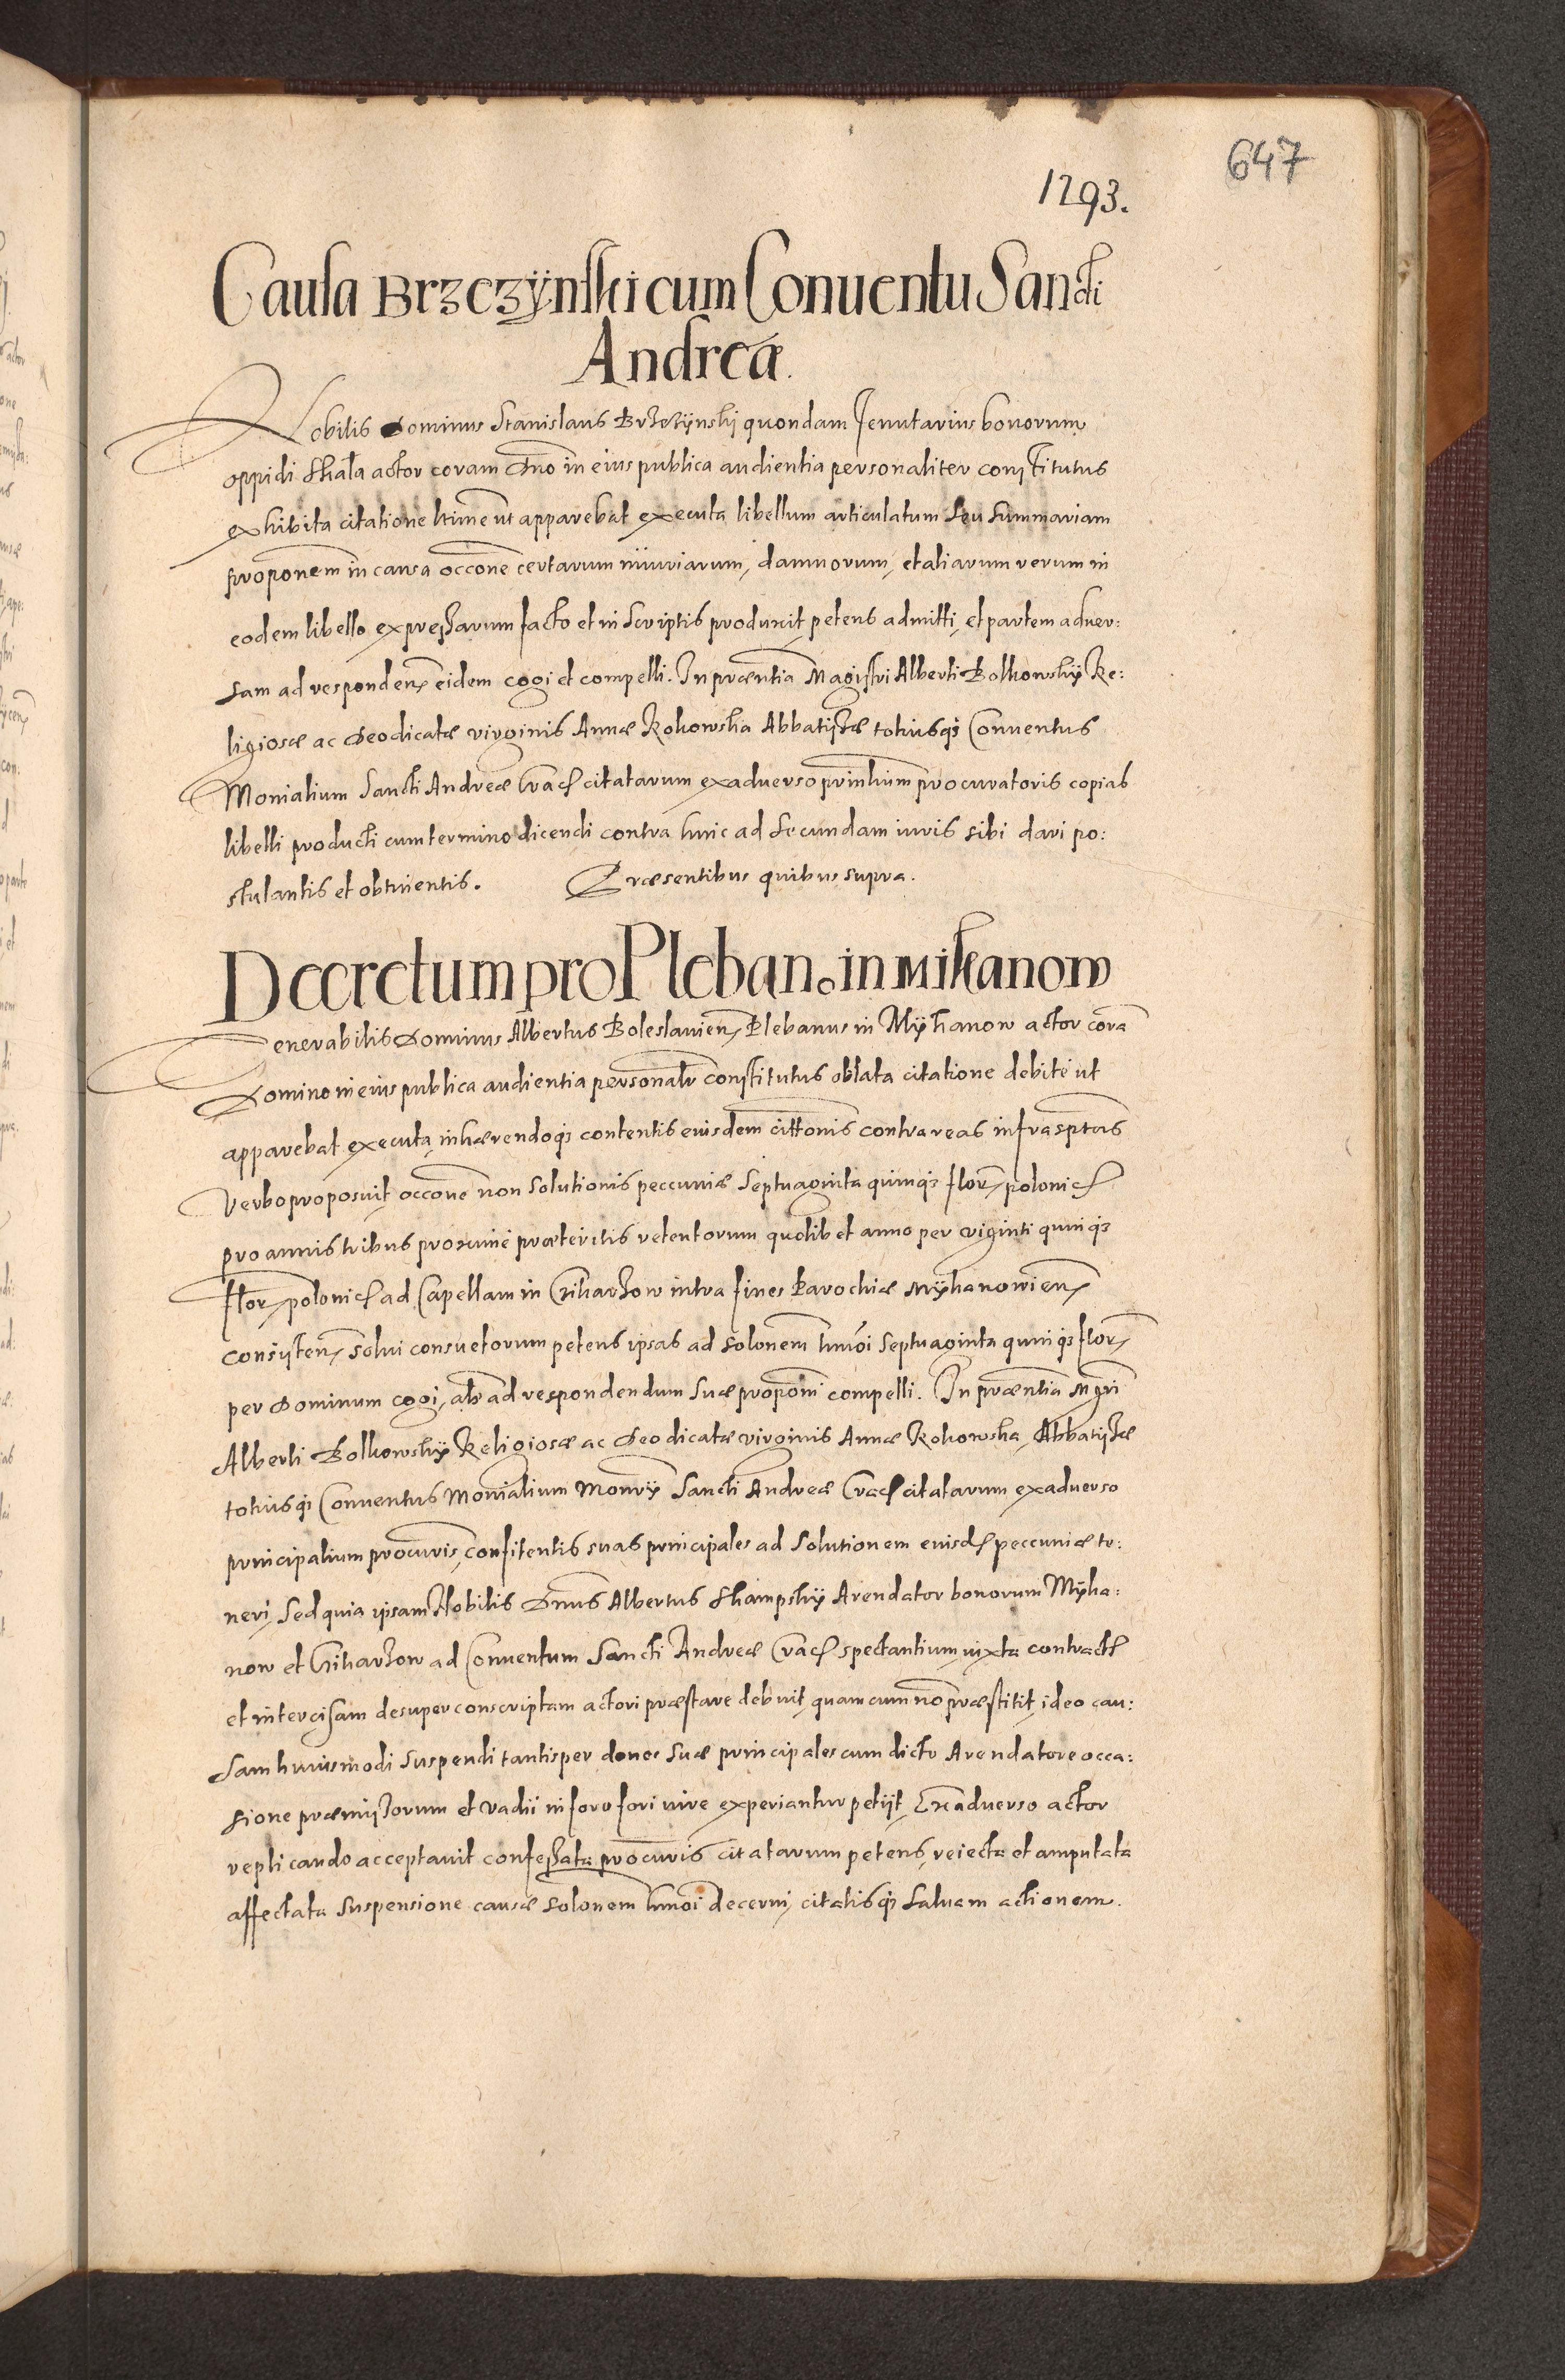 647
1293.
Causa Brzczÿnski cum Conuentu Sancti
Andreæ.
Nobilis Dominus Stanislaus Brzezÿnskj quondam Tenutarius bonorum
oppidi Skala actor coram Dno in eius publica audientia personaliter constitutus
exhibita citatione ltime ut apparebat executa libellum articulatum seu summariam
proponem in causa occone certarum iniuriarum, damnorum, et aliarum rerum in
eodem libello expressarum facto et in scriptis produxit petens admitti, et partem aduer:
sam ad responden eidem cogi et compelli. In præntia Magistri Alberti Bolkowskÿ Re:
ligiosæ ac Deodicatæ virginis Annæ Kokowska Abbatissæ totiusq; Conuentus
Monialium Sancti Andreæ Crac citatarum exaduerso prinlium procuratoris copias
libelli producti cum termino dicendi contra hinc ad secundam iuris sibi dari po:
stulantis et obtinentis. Præsentibus quibus supra.
Decretum pro Plebano in Mikanow
Venerabilis Dominus Albertus Boleslauien Plebanus in Mÿkanow actor cora
Domino in eius publica audientia personalr constitutus oblata citatione debite ut
apparebat executa, inhærendoq; contentis eiusdem cittonis contra reas infrasptas
Verbo proposuit occone non solutionis peccuniæ septuaginta quinq; flor polonic
pro annis tribus proxime præteritis retentorum quolibet anno per viginti quinq;
flor polonic ad Capellam in Czikarzow intra fines Parochiæ Mÿkanowien
consisten solui consuetorum petens ipsas ad solonem hmoi septuaginta quinq; flor
per Dominum cogi, alr ad respondendum suæ proponi compelli. In præntia Mgri
Alberti Bolkowskÿ Religiosæ ac Deodicatæ virginis Annæ Kokowska, Abbatissæ
totiusq; Conuentus Monialium Monrÿ Sancti Andreæ Crac citatarum exaduerso
principalium procuris, confitentis suas principales ad solutionem eiusd peccuniæ te:
neri, sed quia ipsam Nobilis Dnus Albertus Skampskÿ Arendator bonorum Mÿka:
now et Czikarzow ad Conuentum Sancti Andreæ Crac spectantium iuxta contract
et intercisam desuper conscriptam actori præstare debuit, quam cum no præstitit, ideo cau:
sam huiusmodi suspendi tantisper donec suæ principales cum dicto Arendatore occa:
sione præmissorum et vadii in foro fori iure experiantur petijt, Exaduerso actor
replicando acceptauit confessata procuris citatarum petens, reiecta et amputata
affectata suspensione causæ solonem hmoi decerni, citatisq; saluam actionem.